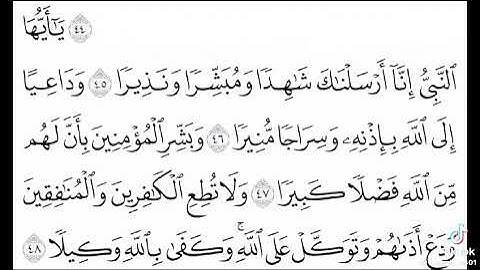 ٤٤ يَـٰٓأَيُّهَا
ٱلنَّبِىُّ إِنَّآ أَرْسَلْنَـٰكَ شَـٰهِدًا وَمُبَشِّرًا وَنَذِيرًا ٤٥ وَدَاعِيًا
إِلَى ٱللَّهِ بِإِذْنِهِۦ وَسِرَاجًا مُّنِيرًا ٤٦ وَبَشِّرِ ٱلْمُؤْمِنِينَ بِأَنَّ لَهُم
مِّنَ ٱللَّهِ فَضْلًا كَبِيرًا ٤٧ وَلَا تُطِعِ ٱلْكَـٰفِرِينَ وَٱلْمُنَـٰفِقِينَ
وَدَعْ أَذَىٰهُمْ وَتَوَكَّلْ عَلَى ٱللَّهِ ۚ وَكَفَىٰ بِٱللَّهِ وَكِيلًا ٤٨